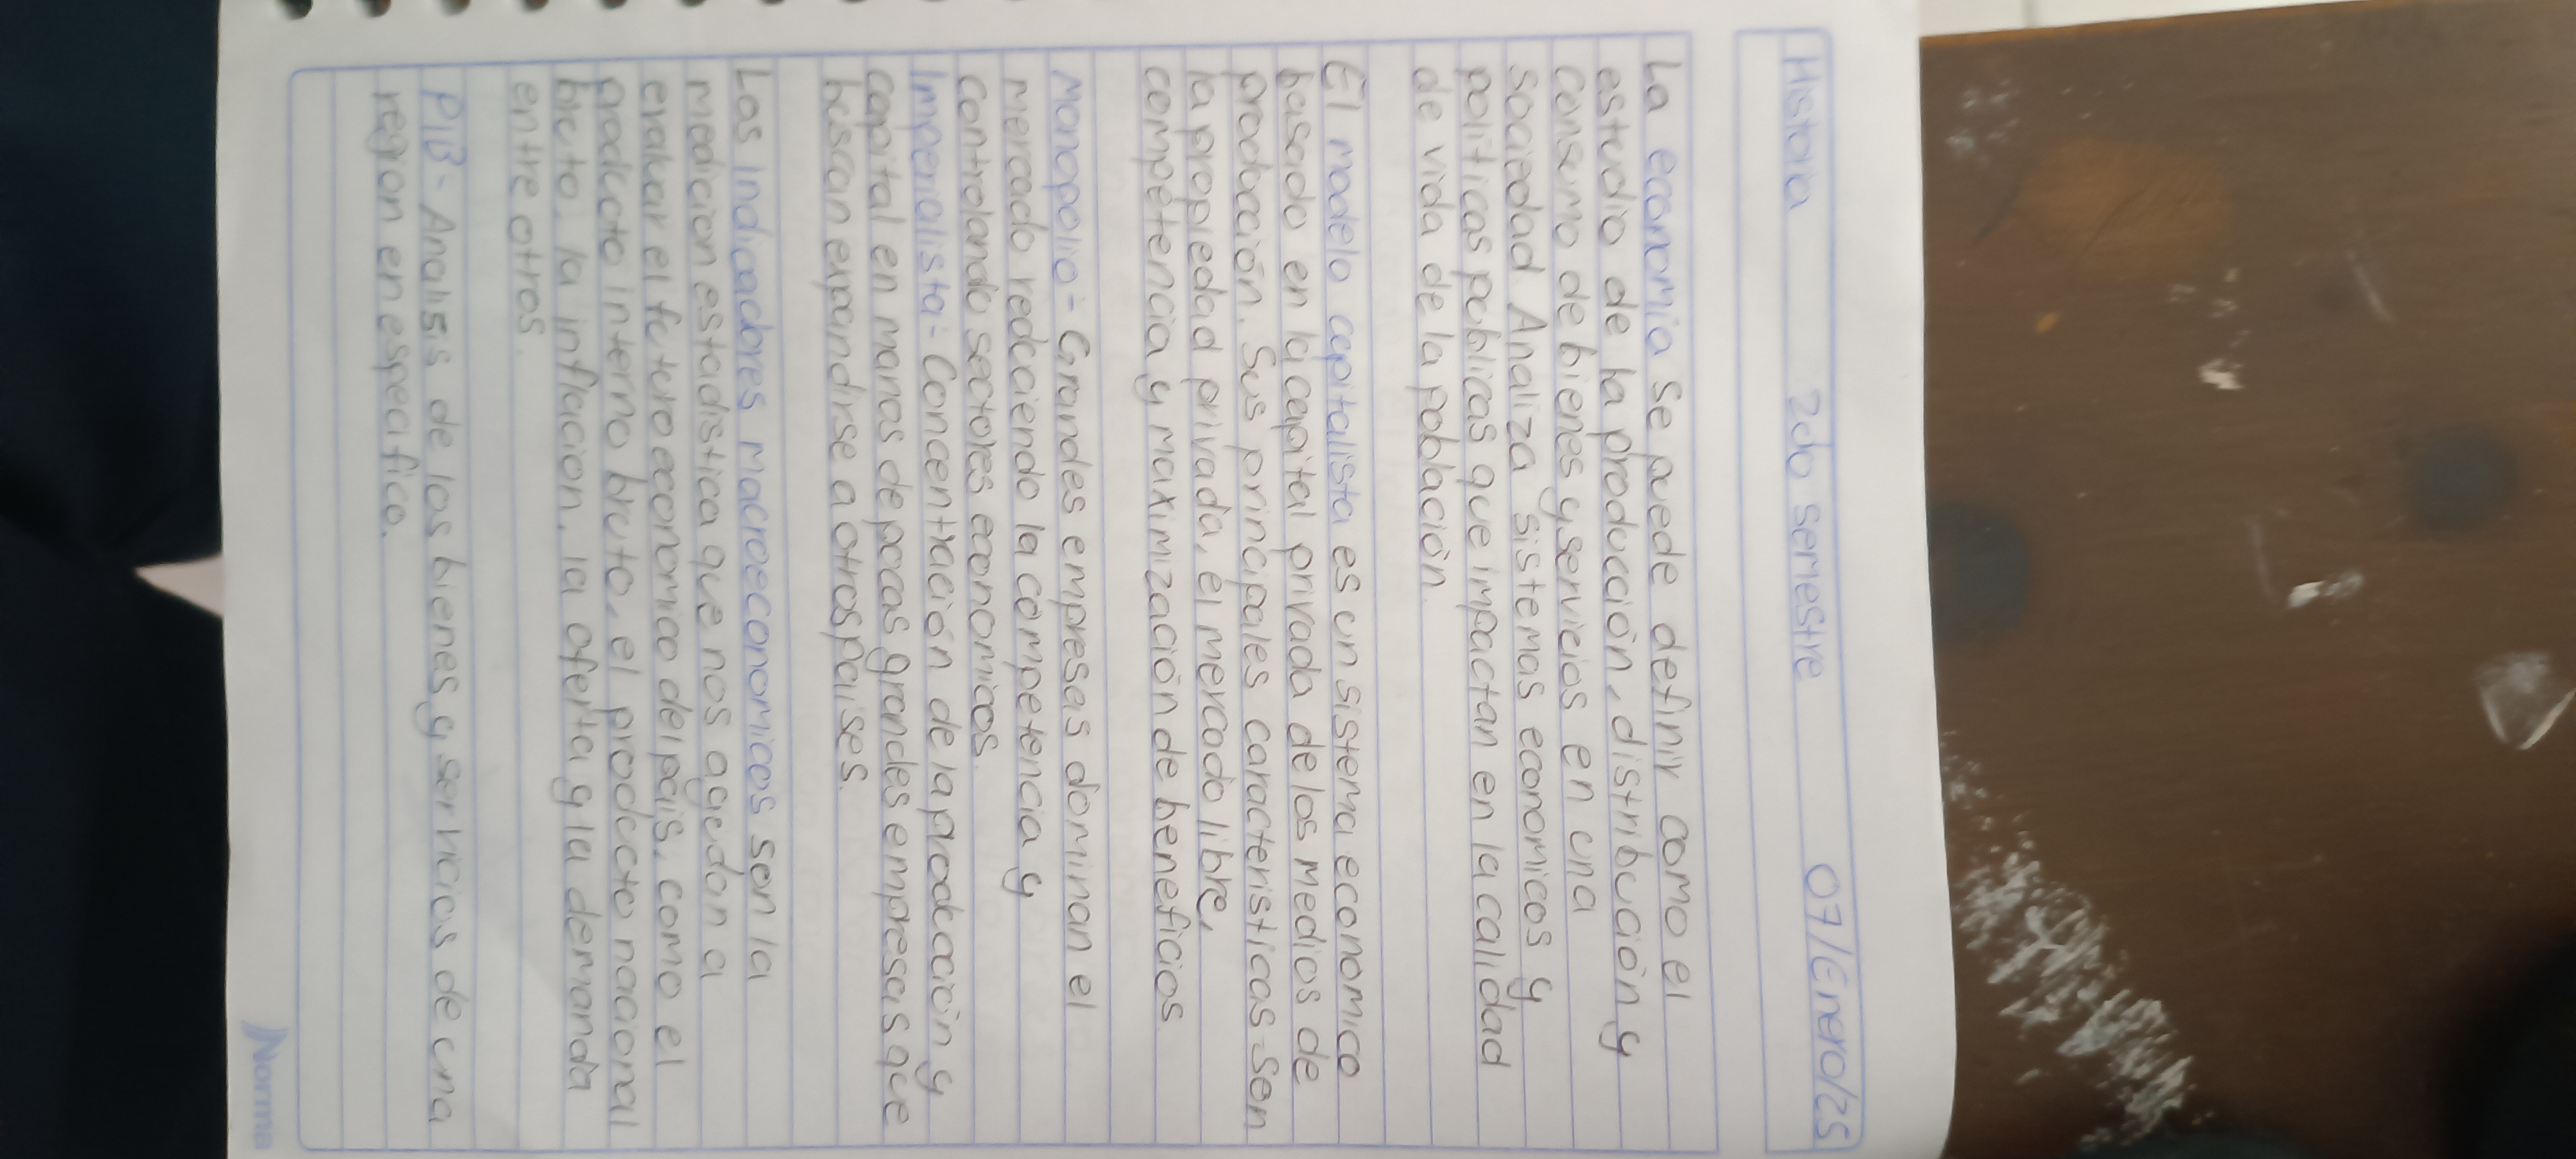 Historia 2do semestre 07/Enero/25
La economia se puede definir como el
estudio de la producción, distribución y
consumo de bienes y servicios en una
sociedad. Analiza sistemas economicos y
politicas publicas que impactan en la calidad
de vida de la población.
El modelo capitalista es un sistema economico
basado en la capital privada de los medios de
producción. Sus principales caracteristicas son
la propiedad privada, el mercado libre,
competencia y maximización de beneficios
Monopolio- Grandes empresas dominan el
mercado reduciendo la competencia y
controlando sectores economicos.
Imperialista- Concentración de la producción y
capital en manos de pocas grandes empresas que
buscan expandirse a otros paises.
Los indicadores macroeconomicos son la
medicion estadistica que nos ayudan a
evaluar el futuro economico del pais, como el
producto interno bruto, el producto nacional
bruto, la inflacion, la oferta y la demanda
entre otros.
PIB- Analisis de los bienes y servicios de una
region en especifico.
Norma